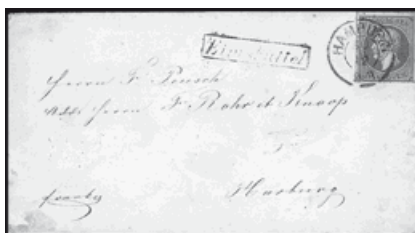 Eimsbüttel
HAMBURG
Herrn F. Peusch
Adr. Herrn F. Rohr et Knoop
Harburg
franko